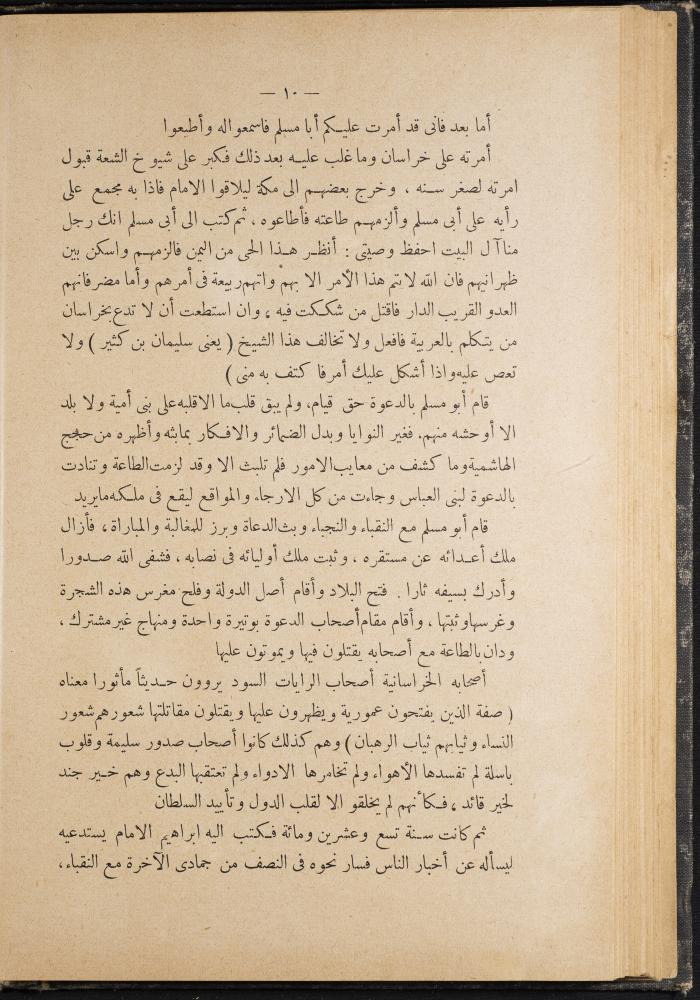 — ١٠ —
أما بعد فانى قد أمرت عليكم أبا مسلم فاسمعوا له وأطيعوا
أمرته على خراسان وما غلب عليه بعد ذلك فكبر على شيوخ الشعة قبول
امرته لصغر سنه ، وخرج بعضهم الى مكة ليلاقوا الامام فاذا به مجمع على
رأيه على أبى مسلم وألزمهم طاعته فأطاعوه ، ثم كتب الى أبى مسلم انك رجل
منا آل البيت احفظ وصيتى : أنظر هذا الحى من اليمن فالزمهم واسكن بين
ظهرانيهم فان الله لا يتم هذا الأمر الا بهم واتهم ربيعة فى أمرهم وأما مضر فانهم
العدو القريب الدار فاقتل من شككت فيه ، وان استطعت أن لا تدع بخراسان
من يتكلم بالعربية فافعل ولا تخالف هذا الشيخ ( يعنى سليمان بن كثير ) ولا
تعص عليه واذا أشكل عليك أمر فا كتف به منى )
قام أبو مسلم بالدعوة حق قيام ، ولم يبق قلب ما الا قلبه على بنى أمية ولا بلد
الا أوحشه منهم . فغير النوايا وبدل الضمائر والافكار بمابثه وأظهره من حجج
الهاشمية وما كشف من معايب الامور فلم تلبث الا وقد لزمت الطاعة وتنادت
بالدعوة لبنى العباس وجاءت من كل الارجاء والمواقع ليقع فى ملكه ما يريد
قام أبو مسلم مع النقباء والنجباء وبث الدعاة وبرز للمغالبة والمباراة ، فأزال
ملك أعدائه عن مستقره ، وثبت ملك أوليائه فى نصابه ، فشفى الله صدورا
وأدرك بسيفه ثارا . فتح البلاد وأقام أصل الدولة وفلح مغرس هذه الشجرة
وغرسها وثبتها ، وأقام مقام أصحاب الدعوة بوتيرة واحدة ومنهاج غير مشترك ،
ودان بالطاعة مع أصحابه يقتلون فيها ويموتون عليها
أصحابه الخراسانية أصحاب الرايات السود يروون حديثاً مأثورا معناه
( صفة الذين يفتحون عمورية ويظهرون عليها ويقتلون مقاتلتها شعورهم شعور
النساء وثيابهم ثياب الرهبان ) وهم كذلك كانوا أصحاب صدور سليمة وقلوب
باسلة لم تفسدها الأهواء ولم تخامرها الادواء ولم تعتقبها البدع وهم خير جند
لخير قائد ، فكأنهم لم يخلقو الا لقلب الدول وتأييد السلطان
ثم كانت سنة تسع وعشرين ومائة فكتب اليه ابراهيم الامام يستدعيه
ليسأله عن أخبار الناس فسار نحوه فى النصف من جمادى الآخرة مع النقباء ،